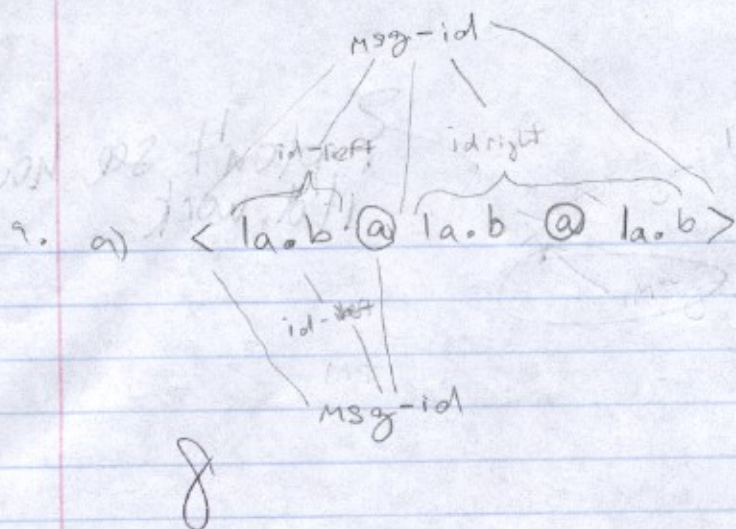 msg-id
id-left idright
9. a) < 1a.b @ 1a.b @ 1a.b >
id-left
msg-id
8